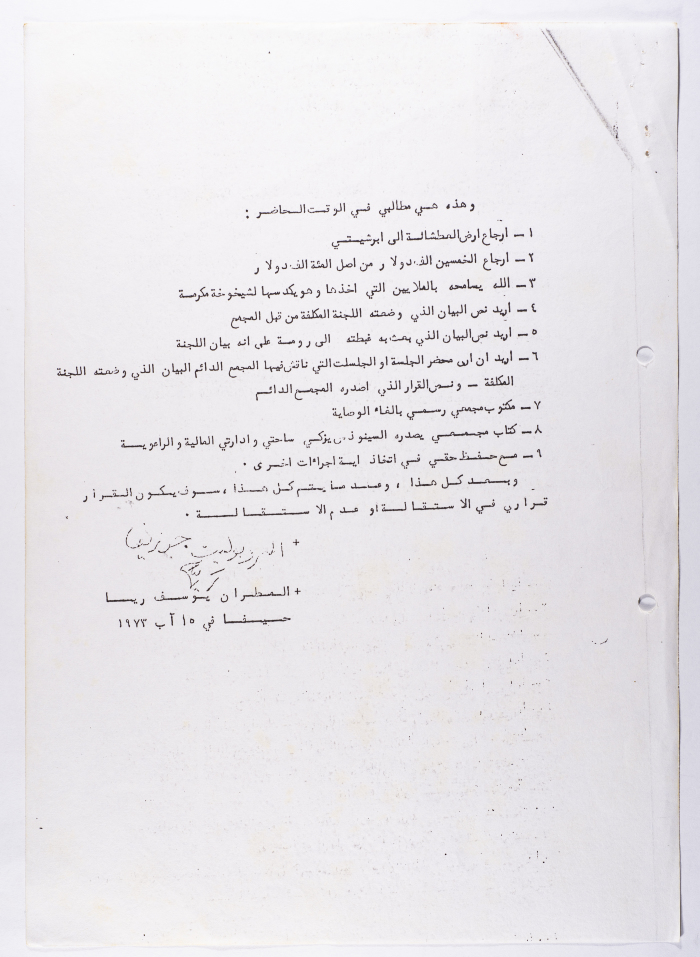 وهذه هي مطالبي في الوقت الحاضر :
١ — ارجاع ارض العطشانة الى ابرشيتي
٢ — ارجاع الخمسين الف دولار من اصل المئة الف دولار
٣ — الله يسامحه بالملايين التي اخذها وهو يكدسها لشيخوخة مكرسة
٤ — اريد نص البيان الذي وضعته اللجنة المكلفة من قبل المجمع
٥ — اريد نص البيان الذي بعث به غبطته الى رومة على انه بيان اللجنة
٦ — اريد ان ارى محضر الجلسة او الجلسات التي ناقش فيها المجمع الدائم البيان الذي وضعته اللجنة
المكلفة — ونص القرار الذي اصدره المجمع الدائم
٧ — مكتوب مجمعي رسمي بالغاء الوصاية
٨ — كتاب مجمعي يصدره السينودس يزكي ساحتي وادارتي المالية والراعوية
٩ — مع حفظ حقي في اتخاذ اية اجراءات اخرى .
وبعد كل هذا ، وعندما يتم كل هذا ، سوف يكون القرار
قراري في الاستقالة او عدم الاستقالة .
+
+ المطران يوسف ريا
حيفا في ١٥ آب ١٩٧٣